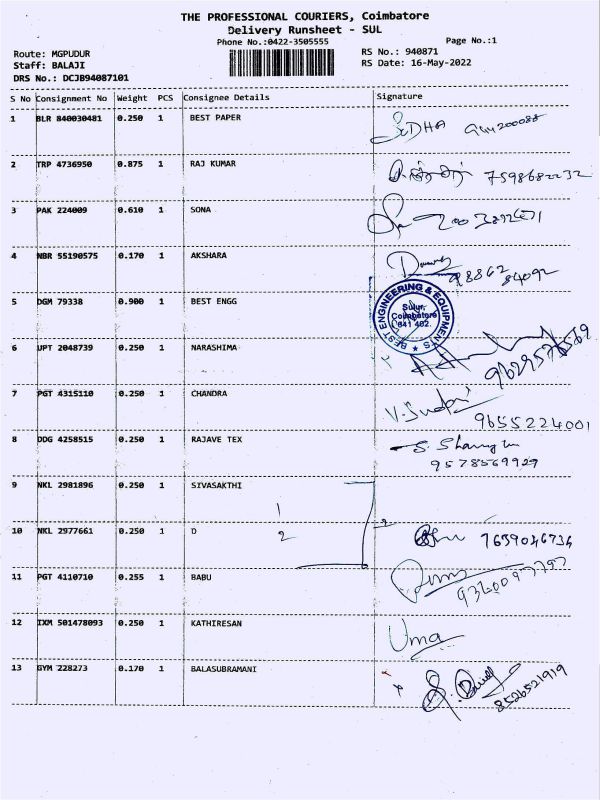 THE PROFESSIONAL COURIERS, Coimbatore
Delivery Runsheet - SUL
Phone No.:0422-3505555
Page No.:1
Route: MGPUDUR
RS No.: 940871
Staff: BALAJI
RS Date: 16-May-2022
DRS No.: DCJB94087101
S No Consignment No Weight PCS Consignee Details Signature
1 BLR 840030481 0.250 1 BEST PAPER
2 TRP 4736950 0.875 1 RAJ KUMAR 7598682232
3 PAK 224009 0.610 1 SONA
4 NBR 55190575 0.170 1 AKSHARA
98862
84092
5 DGM 79338 0.900 1 BEST ENGG
BEST ENGINEERING & EQUIPMENTS
Sulur,
Coimbatore
641 402.
6 UPT 2048739 0.250 1 NARASHIMA
7 PGT 4315110 0.250 1 CHANDRA
9655224001
8 DDG 4258515 0.250 1 RAJAVE TEX
9578569929
9 NKL 2981896 0.250 1 SIVASAKTHI
1
10 NKL 2977661 0.250 1 D 2 2 7639046734
11 PGT 4110710 0.255 1 BABU
12 IXM 501478093 0.250 1 KATHIRESAN Uma
13 GYM 228273 0.170 1 BALASUBRAMANI 8526521919